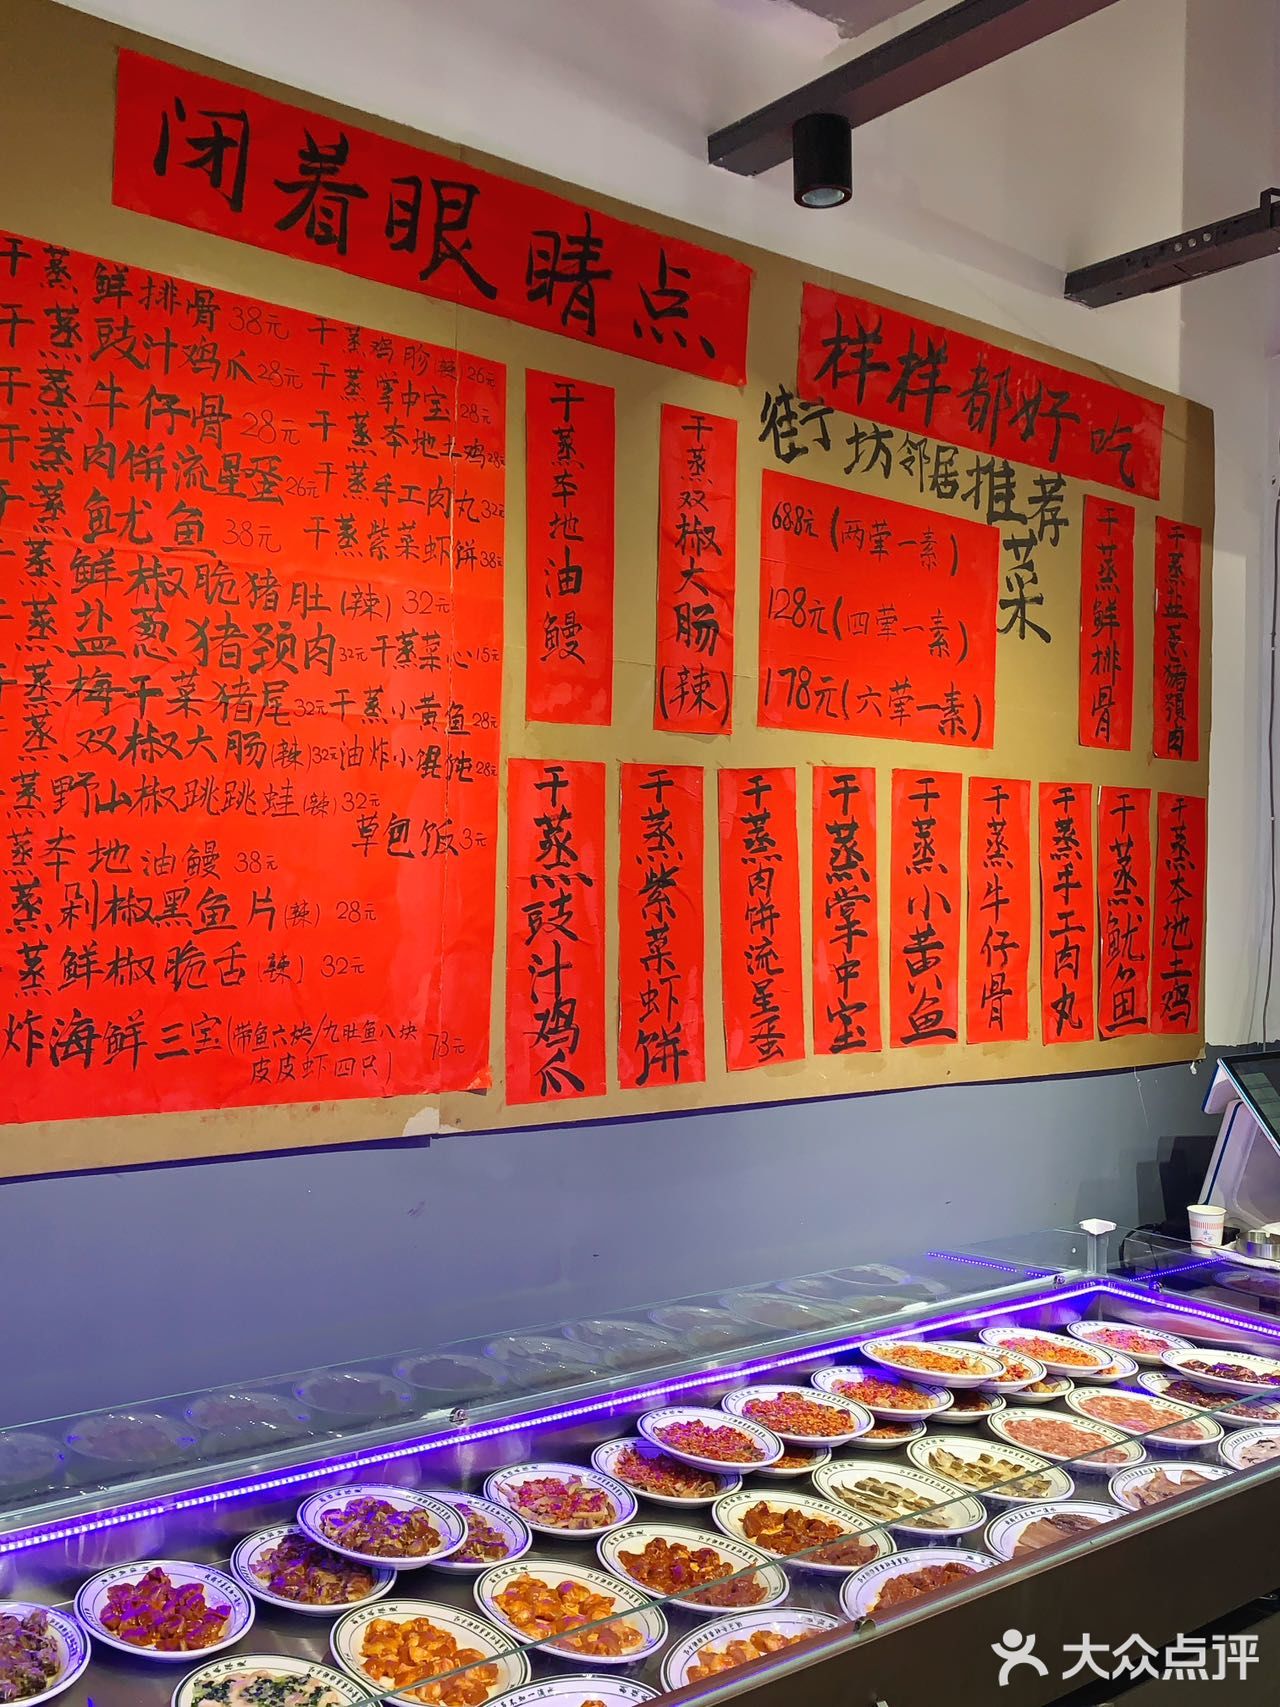 闭着眼睛点
样样都好吃
街坊邻居推荐菜
干蒸鲜排骨 38元
干蒸豉汁鸡爪 28元
干蒸牛仔骨 28元
干蒸肉饼流星蛋 26元
干蒸鱿鱼 38元
蒸鲜椒脆猪肚(辣) 32元
蒸盐葱猪颈肉 32元
干蒸梅干菜猪尾 32元
蒸双椒大肠(辣) 32元
蒸野山椒跳跳蛙(辣) 32元
蒸本地油鳗 38元
蒸剁椒黑鱼片(辣) 28元
蒸鲜椒脆舌(辣) 32元
炸海鲜三宝(带鱼六块/九肚鱼八块
皮皮虾四只) 78元
干蒸鸡胗(辣) 26元
干蒸掌中宝 28元
干蒸本地土鸡 28元
干蒸手工肉丸 32元
干蒸紫菜虾饼 38元
干蒸菜心 15元
干蒸小黄鱼 28元
油炸小馄饨 28元
草包饭 3元
干蒸本地油鳗
干蒸双椒大肠(辣)
68.8元(两荤一素)
128元(四荤一素)
178元(六荤一素)
干蒸鲜排骨
干蒸盐葱猪颈肉
干蒸豉汁鸡爪
干蒸紫菜虾饼
干蒸肉饼流星蛋
干蒸掌中宝
干蒸小黄鱼
干蒸牛仔骨
干蒸手工肉丸
干蒸鱿鱼
干蒸本地土鸡
大众点评